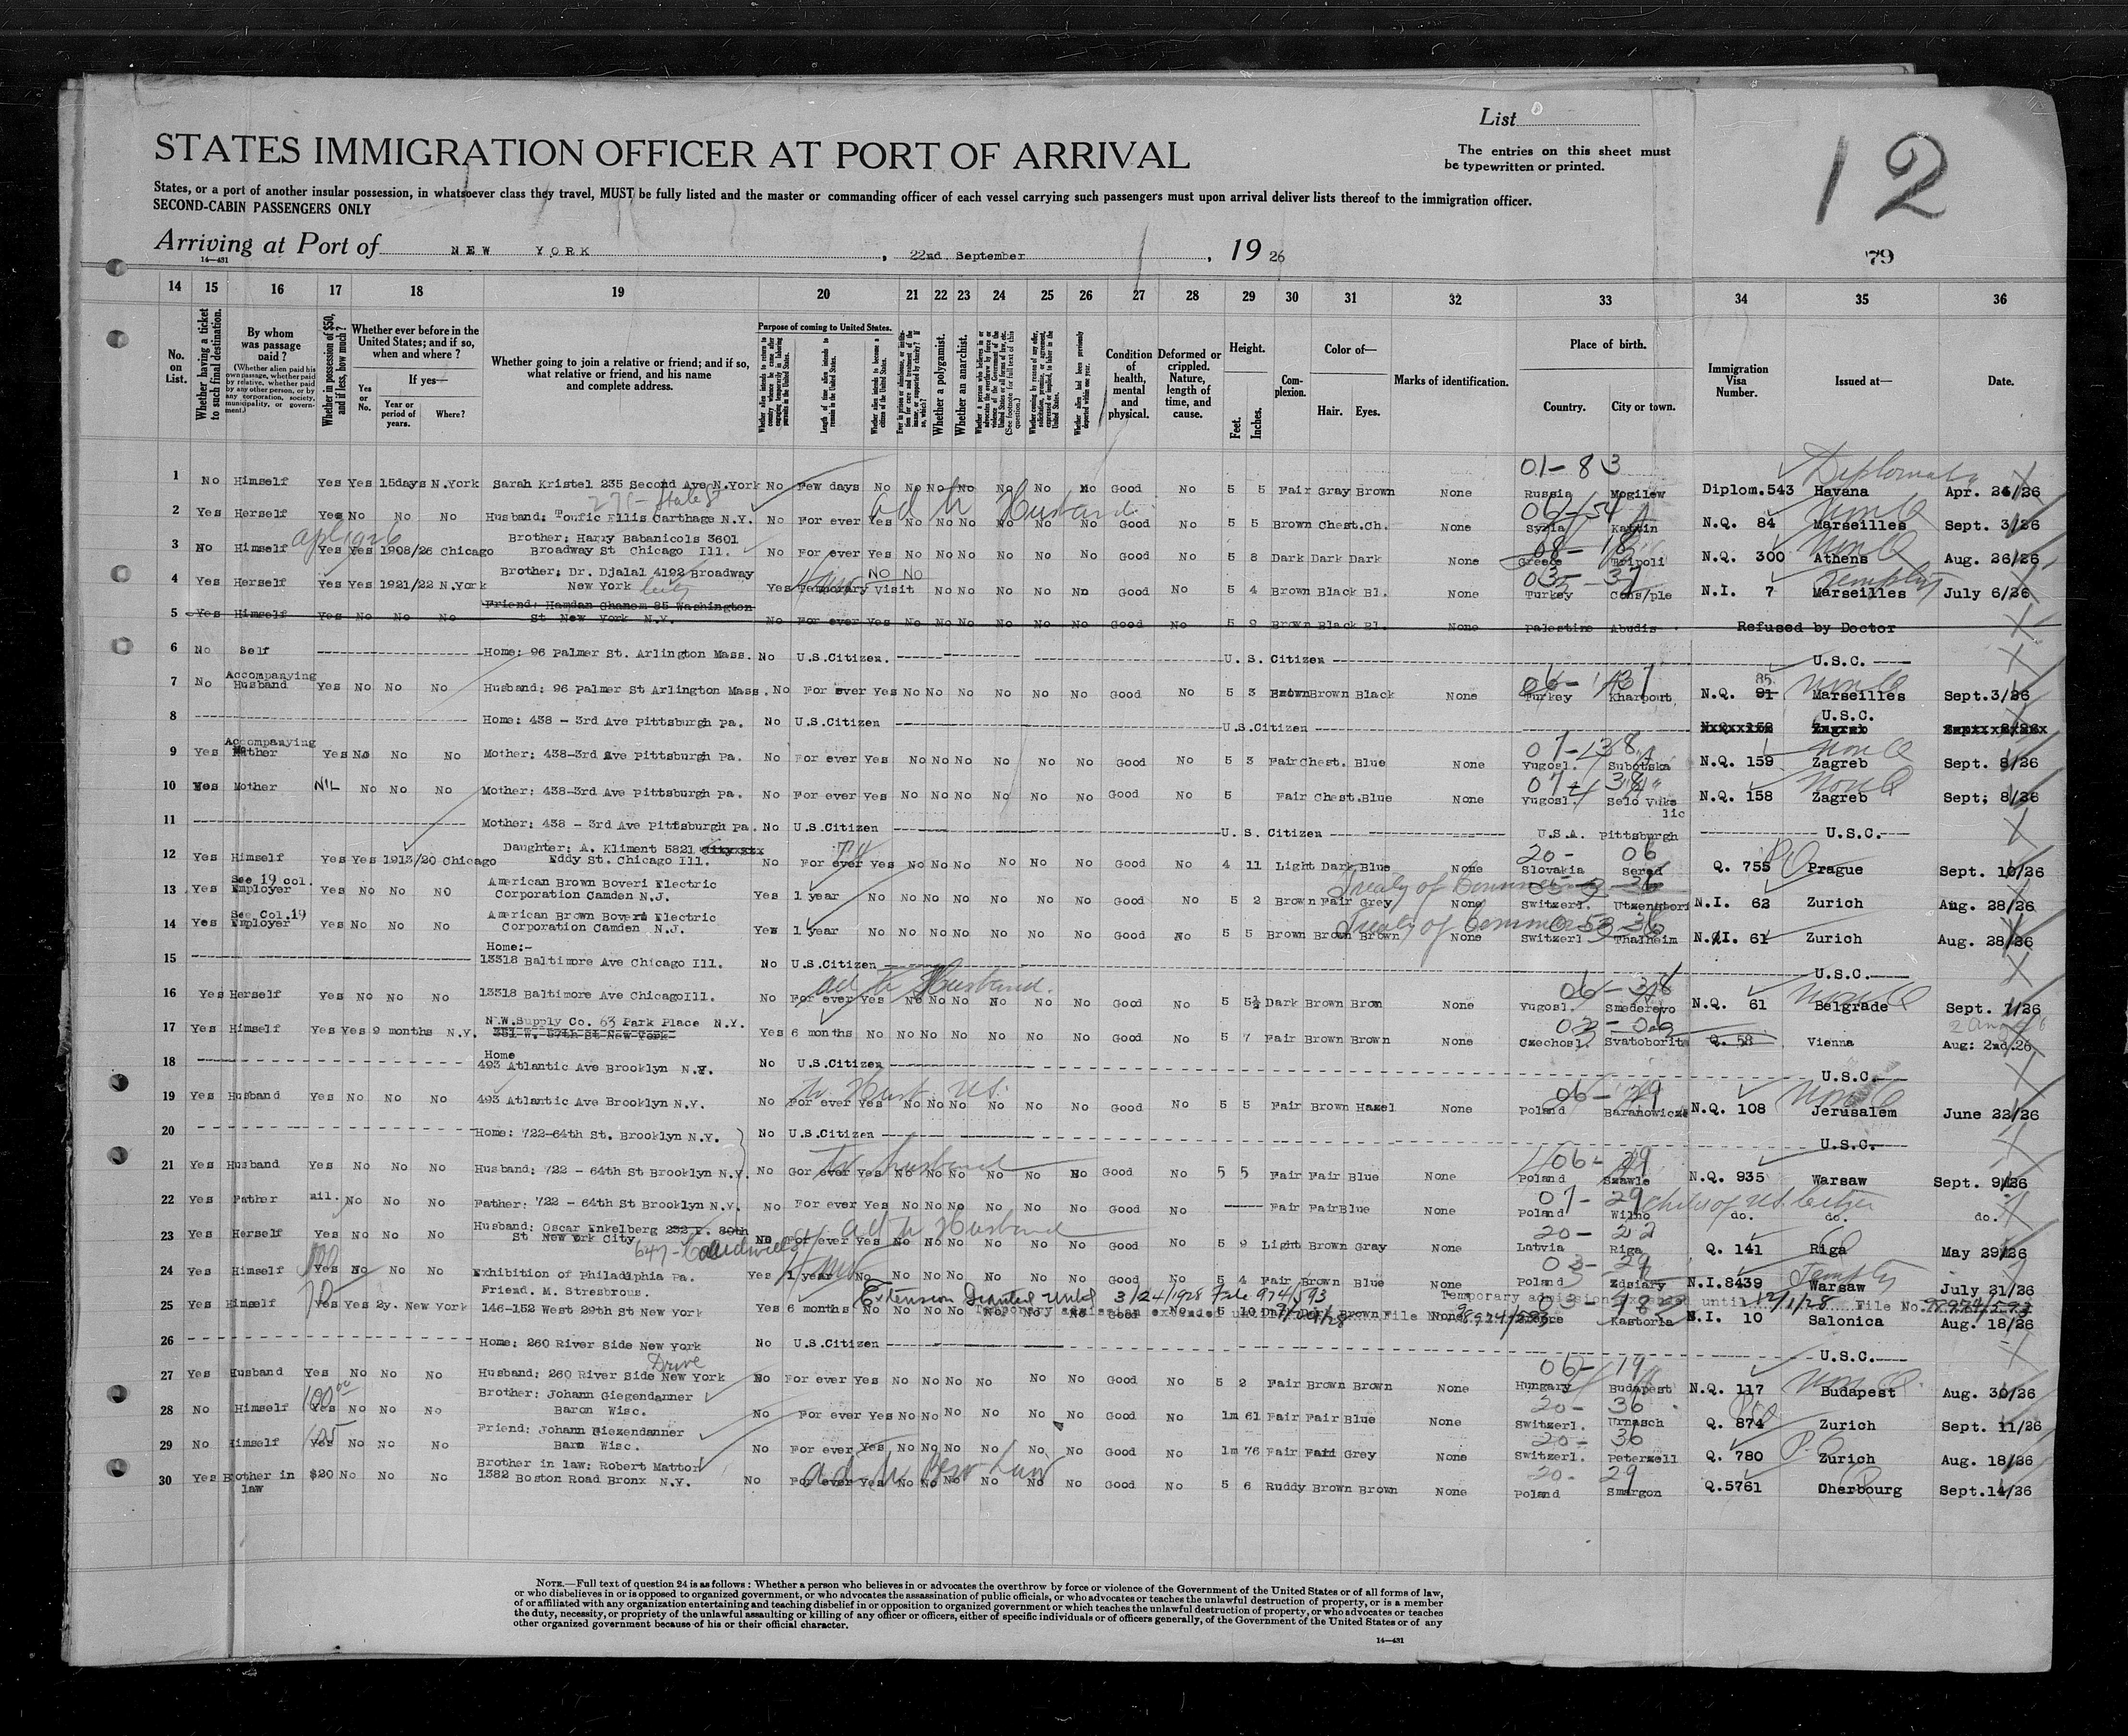 List
STATES IMMIGRATION OFFICER AT PORT OF ARRIVAL
The entries on this sheet must
be typewritten or printed.
12
States, or a port of another insular possession, in whatsoever class they travel, MUST be fully listed and the master or commanding officer of each vessel carrying such passengers must upon arrival deliver lists thereof to the immigration officer.
SECOND-CABIN PASSENGERS ONLY
Arriving at Port of NEW YORK, 22nd September, 1926
14—431
79
14 15 16 17 18 19 20 21 22 23 24 25 26 27 28 29 30 31 32 33 34 35 36
No. on List.
Whether having a ticket to such final destination.
By whom was passage paid?
(Whether alien paid his own passage, whether paid by relative, whether paid by any other person, or by any corporation, society, municipality, or government.)
Whether in possession of $50, and if less, how much?
Whether ever before in the United States; and if so, when and where?
Yes or No.
If yes—
Year or period of years.
Where?
Whether going to join a relative or friend; and if so, what relative or friend, and his name and complete address.
Purpose of coming to United States.
Length of time alien intends to remain in the United States.
Whether alien intends to become a citizen of the United States.
Whether a polygamist.
Whether an anarchist.
Condition of health, mental and physical.
Deformed or crippled. Nature, length of time, and cause.
Height.
Feet.
Inches.
Complexion.
Color of—
Hair. Eyes.
Marks of identification.
Place of birth.
Country. City or town.
Immigration Visa Number.
Issued at—
Date.
01-83 Diplomat
1 No Himself Yes Yes 15days N.York Sarah Kristel 235 Second Ave N.York No Few days No No No No No No No Good No 5 5 Fair Gray Brown None Russia Mogilew Diplom.543 Havana Apr. 24/26
ad to Husband 06-54 Non Q
2 Yes Herself Yes No No No Husband: Toufic Ellis Carthage N.Y. No For ever Yes No No No No No No Good No 5 5 Brown Chest.Ch. None Syria N.Q. 84 Marseilles Sept. 3/26
Brother; Harry Babanicols 3601 08-18 Non Q
3 No Himself Yes Yes 1908/26 Chicago Broadway St Chicago Ill. No For ever Yes No No No No No No Good No 5 8 Dark Dark Dark None Greece Tripoli N.Q. 300 Athens Aug. 26/26
Brother; Dr. Djalal 4192 Broadway NO NO 03-37
4 Yes Herself Yes Yes 1921/22 N.York New York City Yes Temporary Visit No No No No No Good No 5 4 Brown Black Bl. None Turkey Cons/ple N.I. 7 Marseilles July 6/26
Friend: Hamdan Ghanem 85 Washington
5 Yes Himself Yes No No No St New York N.Y. No For ever Yes No No No No No No Good No 5 9 Brown Black Bl. None Palestine Abudis Refused by Doctor
6 No Self Home: 96 Palmer St. Arlington Mass. No U.S.Citizen. U. S. Citizen U.S.C.
Accompanying 06-37 85 Non Q
7 No Husband Yes No No No Husband; 96 Palmer St Arlington Mass. No For ever Yes No No No No No No Good No 5 3 Brown Brown Black None Turkey Kharpout, N.Q. 91 Marseilles Sept.3/26
8 Home: 438 - 3rd Ave Pittsburgh Pa. No U.S.Citizen U.S.Citizen U.S.C.
Accompanying 07-38 Non Q
9 Yes Mother Yes No No No Mother; 438-3rd Ave Pittsburgh Pa. No For ever Yes No No No No No No Good No 5 3 Fair Chest. Blue None Yugosl. Subotska N.Q. 159 Zagreb Sept. 8/26
07-38 Non Q
10 Yes Mother NIL No No No Mother; 438-3rd Ave Pittsburgh Pa. No For ever Yes No No No No No No Good No 5 Fair Chest.Blue None Yugosl. N.Q. 158 Zagreb Sept; 8/26
11 Mother; 438 - 3rd Ave Pittsburgh Pa. No U.S.Citizen U. S. Citizen U.S.A. Pittsburgh U.S.C.
Daughter; A. Kliment 5821 20-06
12 Yes Himself Yes Yes 1913/20 Chicago Eddy St. Chicago Ill. No For ever Yes No No No No No No Good No 4 11 Light Dark Blue None Slovakia Sered Q. 755 Prague Sept. 10/26
See 19 col. American Brown Boveri Electric Treaty of Commerce 03-36
13 Yes Employer Yes No No No Corporation Camden N.J. Yes 1 year No No No No No No No Good No 5 2 Brown Fair Grey None Switzerl. Utzenstorf N.I. 62 Zurich Aug. 28/26
See Col.19 American Brown Boveri Electric Treaty of Commerce 53-36
14 Yes Employer Yes No No No Corporation Camden N.J. Yes 1 year No No No No No No No Good No 5 5 Brown Brown Brown None Switzerl Thalheim N.I. 61 Zurich Aug. 28/26
Home:-
15 13318 Baltimore Ave Chicago Ill. No U.S.Citizen U.S.C.
ad to Husband. 06-38 Non Q
16 Yes Herself Yes No No No 13318 Baltimore Ave Chicago Ill. No For ever Yes No No No No No No Good No 5 5½ Dark Brown Brown Yugosl. Smederevo N.Q. 61 Belgrade Sept. 1/26
N.W.Supply Co. 63 Park Place N.Y.
17 Yes Himself Yes Yes 9 months N.Y. 351 W. 57th St New York Yes 6 months No No No No No No No Good No 5 7 Fair Brown Brown None Czechosl. Svatoborits Q. 58 Vienna Aug: 2nd.26
Home
18 493 Atlantic Ave Brooklyn N.Y. No U.S.Citizen U.S.C.
to Husb. U.S. 06-29 Non Q
19 Yes Husband Yes No No No 493 Atlantic Ave Brooklyn N.Y. No For ever Yes No No No No No No Good No 5 5 Fair Brown Hazel None Poland Baranowicze N.Q. 108 Jerusalem June 22/26
20 Home: 722-64th St. Brooklyn N.Y. No U.S.Citizen U.S.C.
to husband 06-29
21 Yes Husband Yes No No No Husband; 722 - 64th St Brooklyn N.Y. No Gor ever Yes No No No No No No Good No 5 5 Fair Fair Blue None Poland Szawle N.Q. 935 Warsaw Sept. 9/26
07-29 Child of U.S. Citizen
22 Yes Father nil. No No No Father; 722 - 64th St Brooklyn N.Y. No For ever Yes No No No No No No Good No Fair Fair Blue None Poland Wilno do. do. do.
Husband; Oscar Enkelberg 232 E. 80th ad to Husband 20-22
23 Yes Herself Yes No No No St New York City No For ever Yes No No No No No No Good No 5 9 Light Brown Gray None Latvia Riga Q. 141 Riga May 29/26
03-29
24 Yes Himself Yes No No No Exhibition of Philadelphia Pa. Yes 1 year No No No No No No No Good No 5 4 Fair Brown Blue None Poland Zdsiary N.I.8439 Warsaw July 21/26
Friend. M. Stresbrous. Extension Granted until 3/24/1928 File 974/593
Temporary admission extended until 12/1/28 File No.
25 Yes Himself Yes Yes 2y. New York 146-152 West 29th St New York Yes 6 months No No No No No No No Good No 5 10 Dark Dark Brown None Kastoria N.I. 10 Salonica Aug. 18/26
26 Home: 260 River Side New York No U.S.Citizen U.S.C.
Drive 06-19 Non Q.
27 Yes Husband Yes No No No Husband; 260 River Side New York No For ever Yes No No No No No No Good No 5 2 Fair Brown Brown None Hungary Budapest N.Q. 117 Budapest Aug. 30/26
100.00 Brother: Johann Giegendanner 20-36
28 No Himself Yes No No No Baron Wisc. No For ever Yes No No No No No No Good No 1m 61 Fair Fair Blue None Switzerl. Urnasch Q. 874 Zurich Sept. 11/26
105 Friend; Johann Giezendanner 20-36
29 No Himself Yes No No No Baro Wisc. No For ever Yes No No No No No No Good No 1m 76 Fair Fair Grey None Switzerl. Peterzell Q. 780 Zurich Aug. 18/26
Brother in law; Robert Mattor ad to Bro Law 20-29
30 Yes Brother in law $20 No No No 1382 Boston Road Bronx N.Y. No For ever Yes No No No No No No Good No 5 6 Ruddy Brown Brown None Poland Smargon Q.5761 Cherbourg Sept.14/26
NOTE.—Full text of question 24 is as follows: Whether a person who believes in or advocates the overthrow by force or violence of the Government of the United States or of all forms of law,
or who disbelieves in or is opposed to organized government, or who advocates the assassination of public officials, or who advocates or teaches the unlawful destruction of property, or is a member
of or affiliated with any organization entertaining and teaching disbelief in or opposition to organized government or which teaches the unlawful destruction of property, or who advocates or teaches
the duty, necessity, or propriety of the unlawful assaulting or killing of any officer or officers, either of specific individuals or of officers generally, of the Government of the United States or of any
other organized government because of his or their official character.
14—431